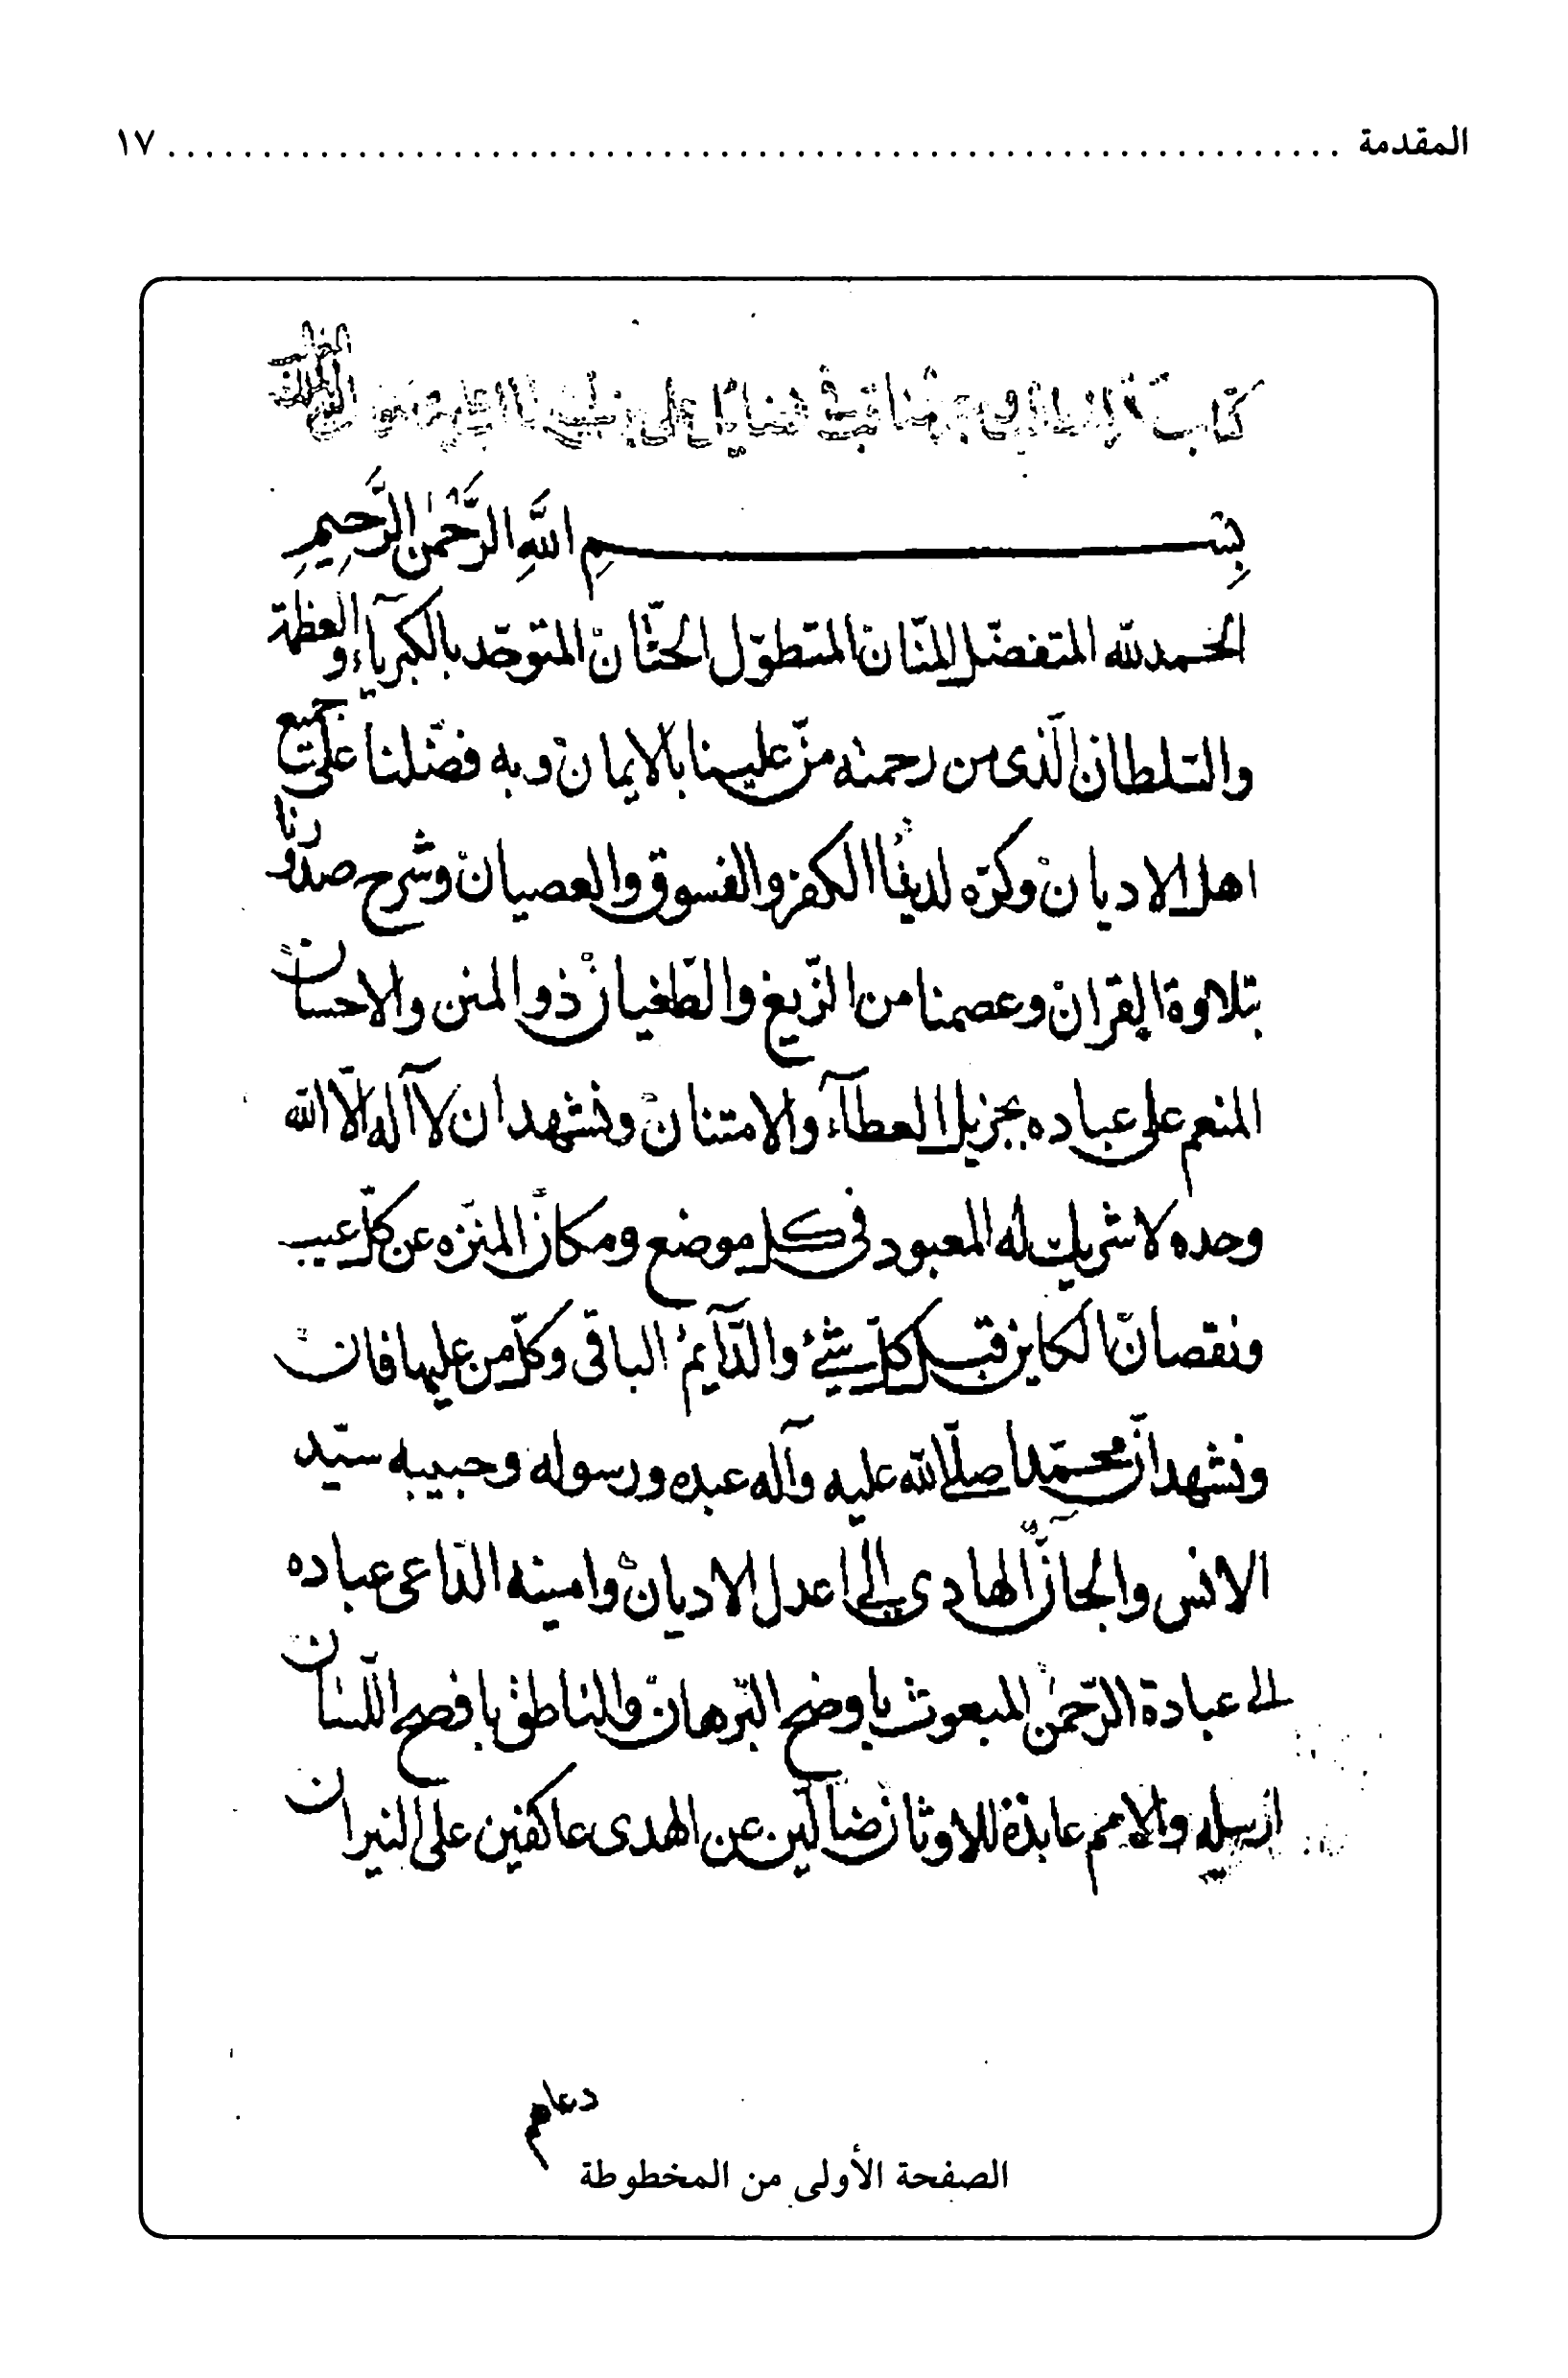 المقدمة ........................................................... ١٧
كتاب في فضايل علي بن ابي طالب
بِسْمِ اللَّهِ الرَّحْمٰنِ الرَّحِيمِ
الحمد لله المتفضّل المنّان المتطوّل الحنّان المتوحّد بالكبرياء والعظمة
والسّلطان الّذى من رحمته منّ علينا بالايمان وبه فضّلنا على جميع
اهل الاديان وكرّه لدينا الكفر والفسوق والعصيان وشرح صدورنا
بتلاوة القران وعصمنا من الزّيغ والطّغيان ذو المنن والاحسان
المنعم على عباده بجزيل العطآء والامتنان ونشهد ان لا آله الّا الله
وحده لا شريك له المعبود فى كل موضع ومكان المنزّه عن كلّ عيب
ونقصان الكاين قبل كلّ شئ والدّآيم الباقى وكلّ من عليها فان
ونشهد انّ محمّدا صلّى الله عليه وآله عبده ورسوله وحبيبه سيّد
الانس والجانّ الهادى الى اعدل الاديان وامينه الدّاعى عباده
الى عبادة الرّحمن المبعوث باوضح البّرهان والناطق بافصح اللّسان
ارسله والامم عابدة للاوثان ضآلّين عن الهدى عاكفين على النيران
الصفحة الأولى من المخطوطة